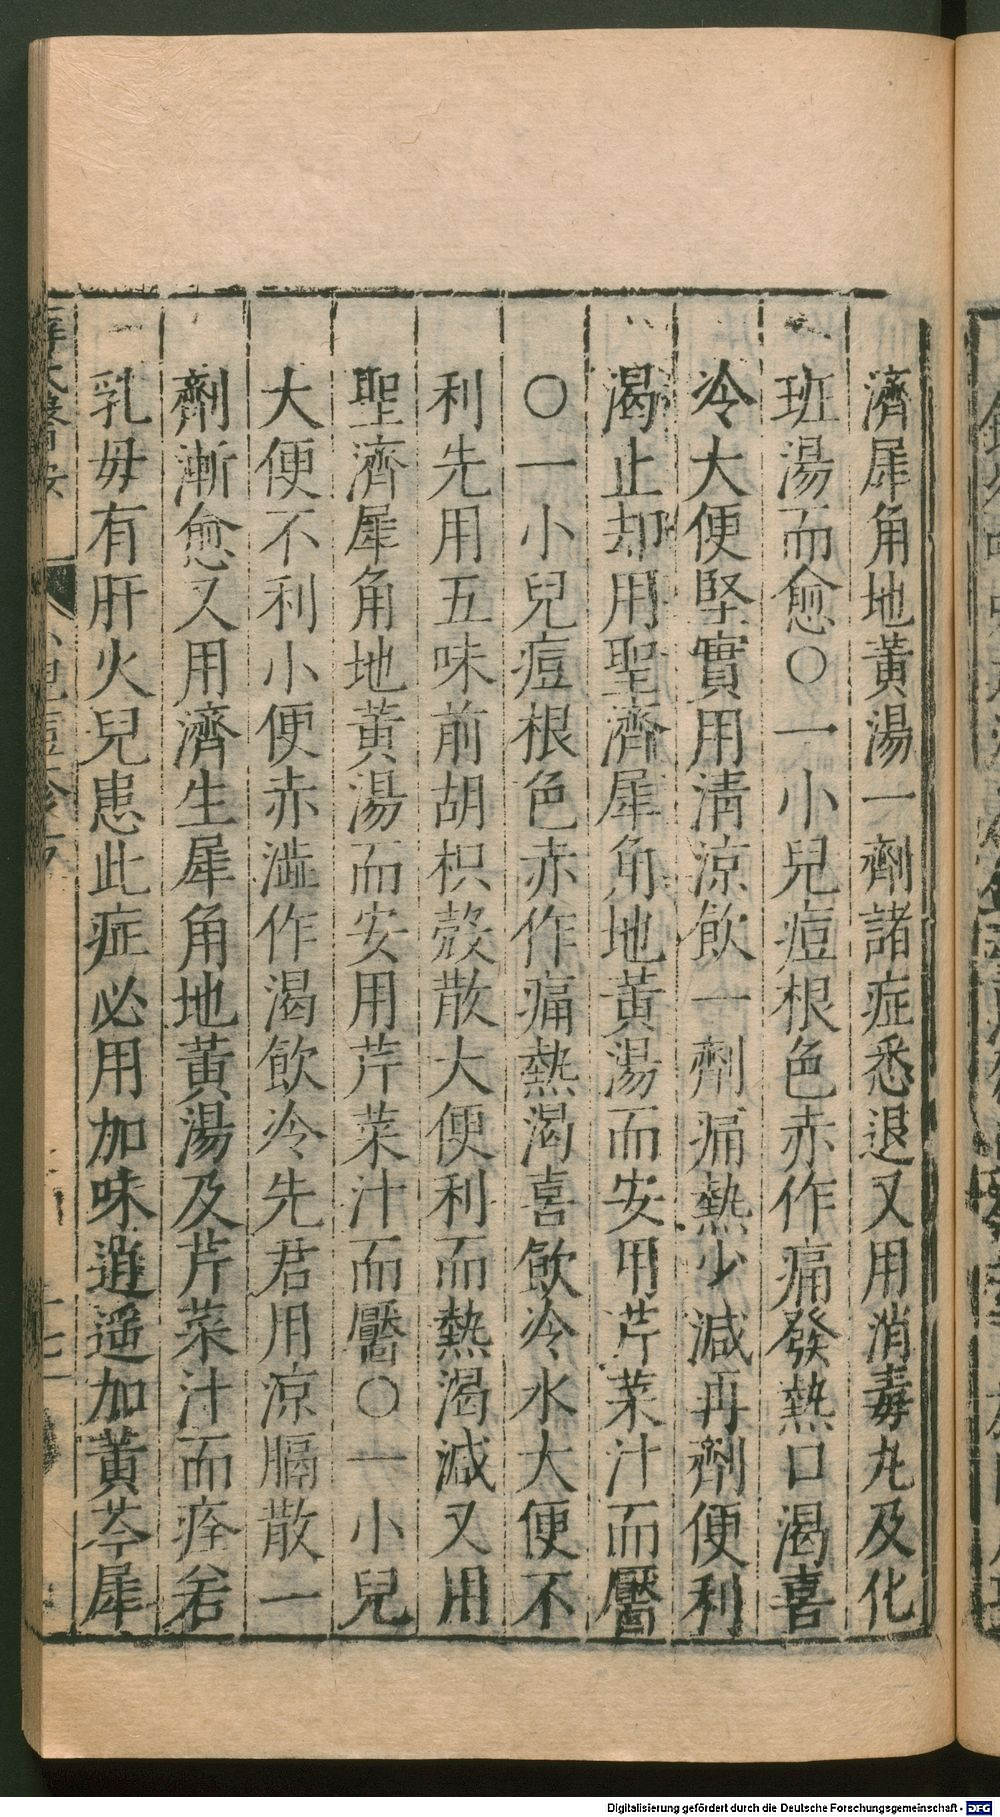 濟犀角地黃湯一劑諸症悉退又用消毒丸及化
班湯而愈○一小兒痘根色赤作痛發熱口渴喜
冷大便堅實用清涼飲一劑痛熱少減再劑便利
渴止却用聖濟犀角地黃湯而安用芹菜汁而靨
○一小兒痘根色赤作痛熱渴喜飲冷水大便不
利先用五味前胡枳殼散大便利而熱渴減又用
聖濟犀角地黃湯而安用芹菜汁而靨○一小兒
大便不利小便赤澁作渴飲冷先君用涼膈散一
劑漸愈又用濟生犀角地黃湯及芹菜汁而痊若
乳母有肝火兒患此症必用加味逍遥加黃芩犀
Digitalisierung gefördert durch die Deutsche Forschungsgemeinschaft - DFG